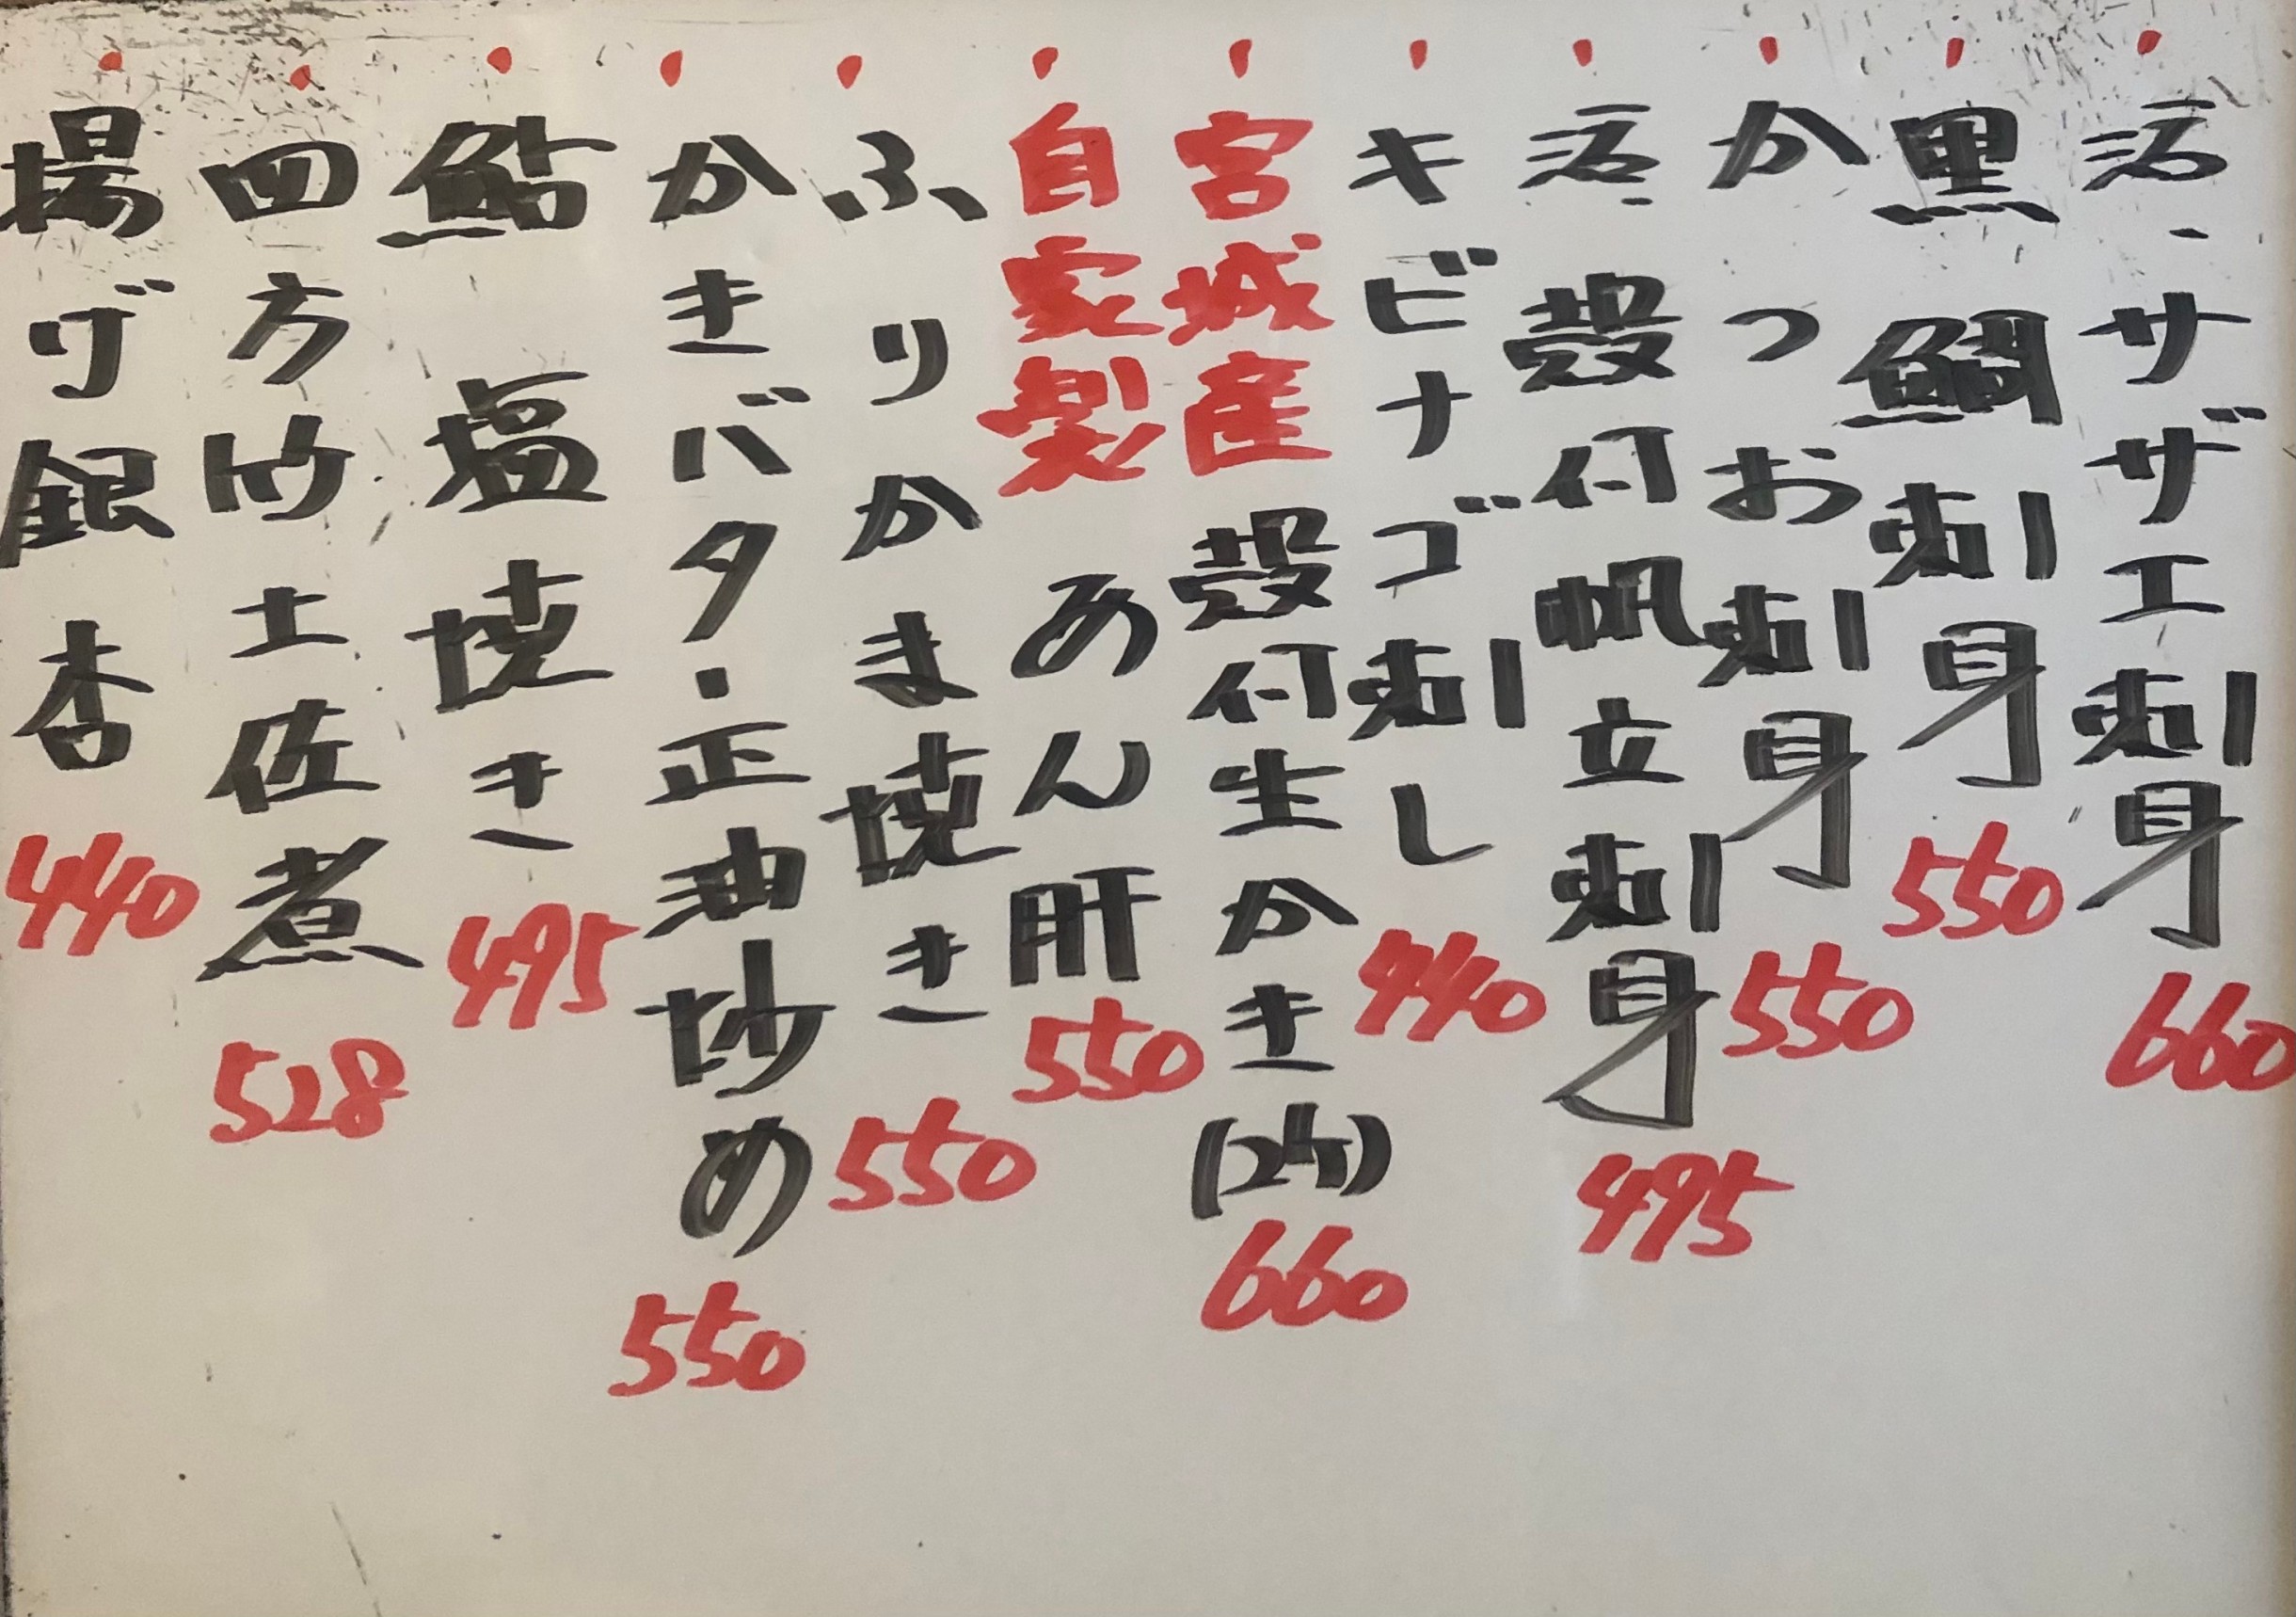 活・サザエ刺身 660
黒鯛刺身 550
かつお刺身 550
活・殻付帆立刺身 495
キビナゴ刺し 440
宮城産殻付生かき(2ケ) 660
自家製あん肝 550
ふりかま焼き 550
かきバター正油炒め 550
鮎塩焼き 495
四方竹土佐煮 528
揚げ銀杏 440